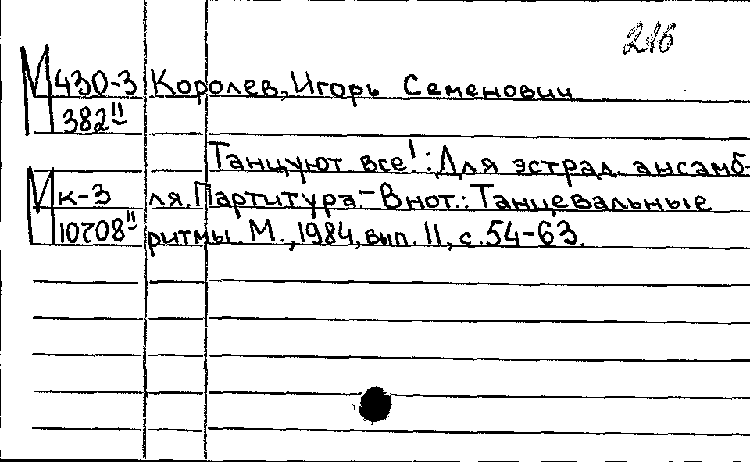 216
М 430-3 Королев, Игорь Семенович
382 II
Танцуют все! : Для эстрад. ансамб-
М к-3 ля. Партитура. - В нот.: Танцевальные
10708 II ритмы. М., 1984, вып. 11, с. 54-63.